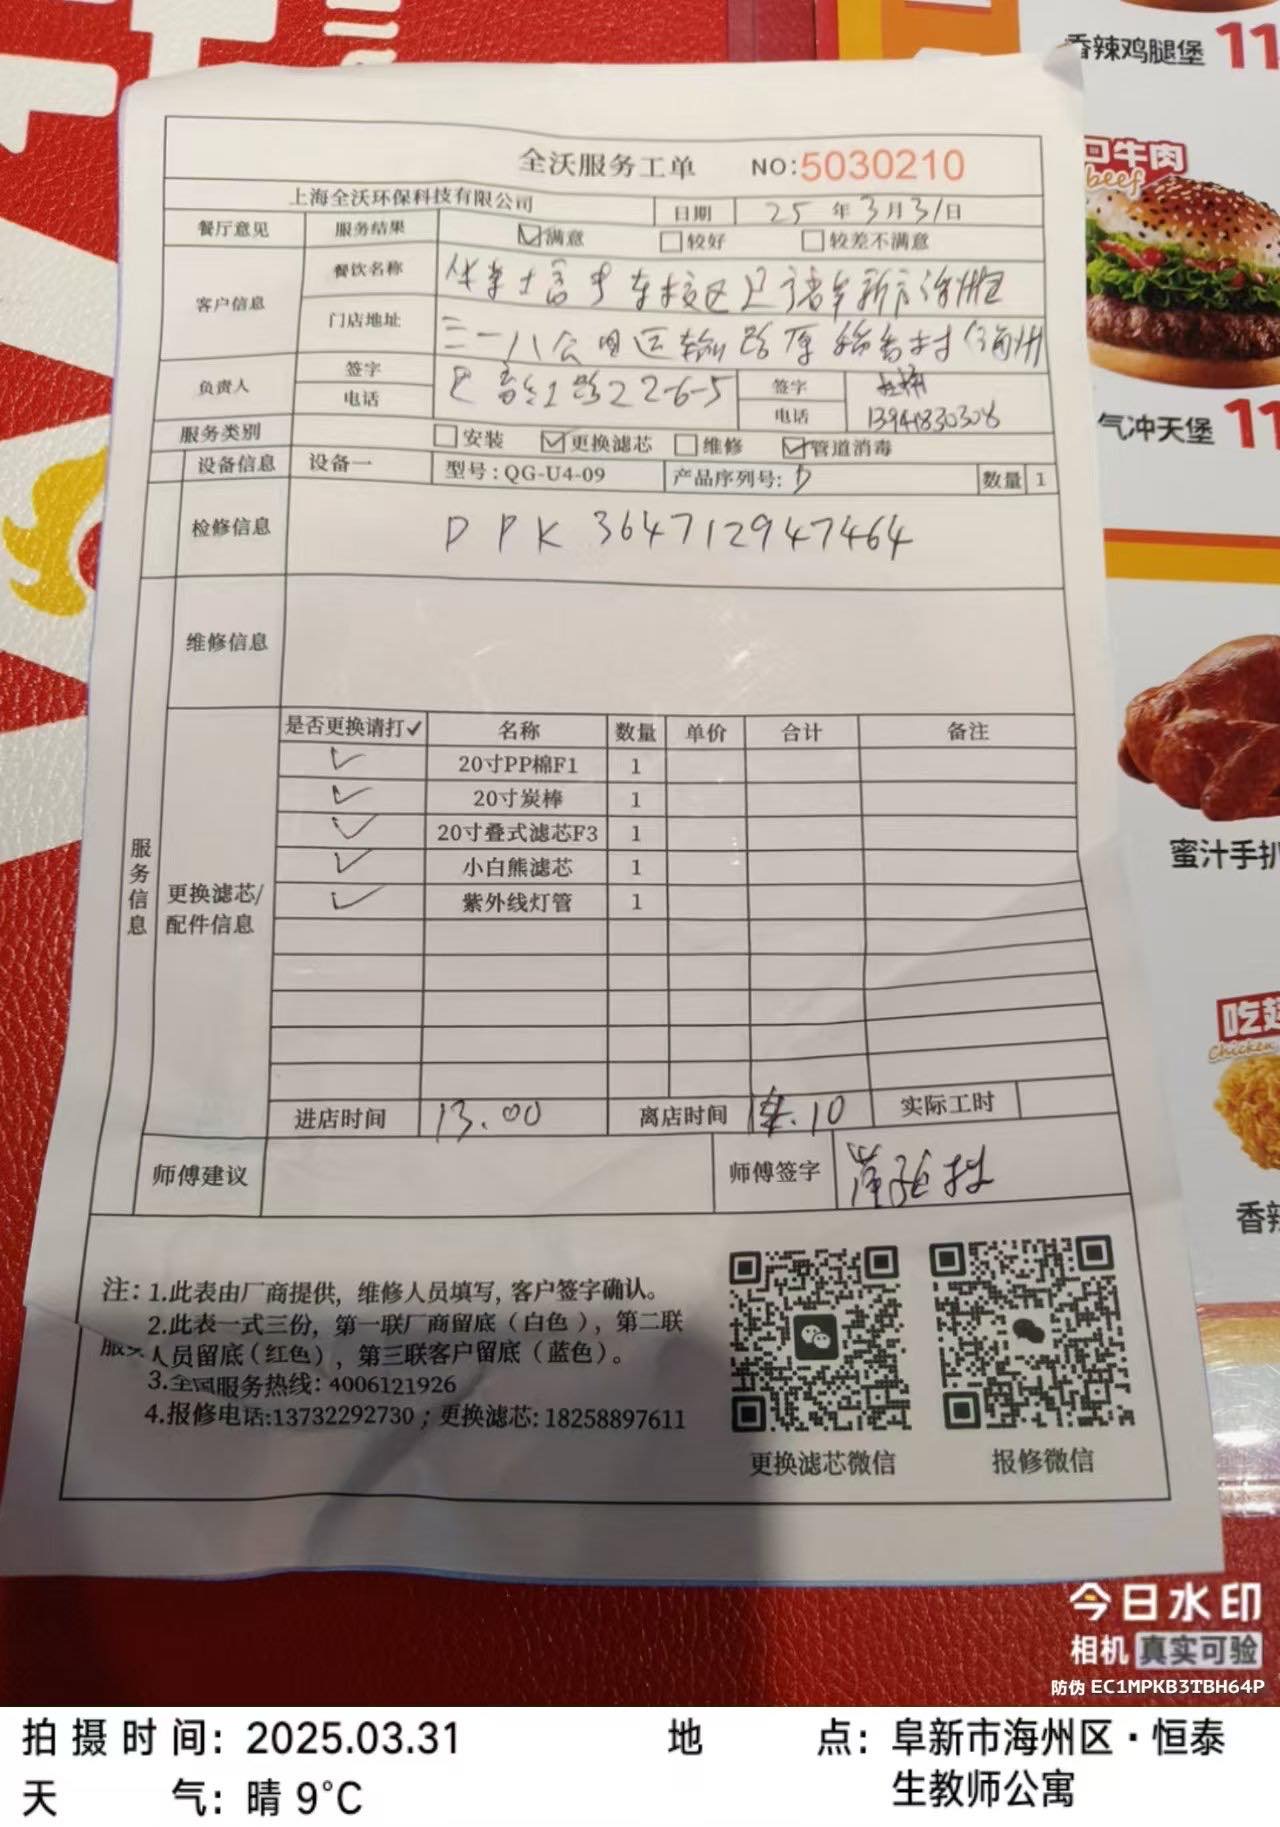 香辣鸡腿堡 11
口牛肉
beef
气冲天堡 11
蜜汁手扒
吃
Chicken
香辣
全沃服务工单 NO:5030210
上海全沃环保科技有限公司 日期 25 年 3 月 31 日
餐厅意见 服务结果 ☑满意 ☐较好 ☐较差不满意
客户信息 餐饮名称
门店地址 三一八公 运输路
负责人 签字 22-6-5 签字
电话 电话 13941830308
服务类别 ☐安装 ☑更换滤芯 ☐维修 ☑管道消毒
设备信息 设备一 型号:QG-U4-09 产品序列号: 数量 1
检修信息 PPK 364712947464
维修信息
服务信息
更换滤芯/
配件信息
是否更换请打✓ 名称 数量 单价 合计 备注
✓ 20寸PP棉F1 1
✓ 20寸炭棒 1
✓ 20寸叠式滤芯F3 1
✓ 小白熊滤芯 1
✓ 紫外线灯管 1
进店时间 13.00 离店时间 .10 实际工时
师傅建议 师傅签字
注: 1.此表由厂商提供, 维修人员填写, 客户签字确认。
2.此表一式三份, 第一联厂商留底(白色), 第二联
服务人员留底(红色), 第三联客户留底(蓝色)。
3.全国服务热线: 4006121926
4.报修电话:13732292730; 更换滤芯: 18258897611
更换滤芯微信 报修微信
今日水印
相机 真实可验
防伪 EC1MPKB3TBH64P
拍摄时间: 2025.03.31 地点: 阜新市海州区·恒泰
天气: 晴 9°C 生教师公寓